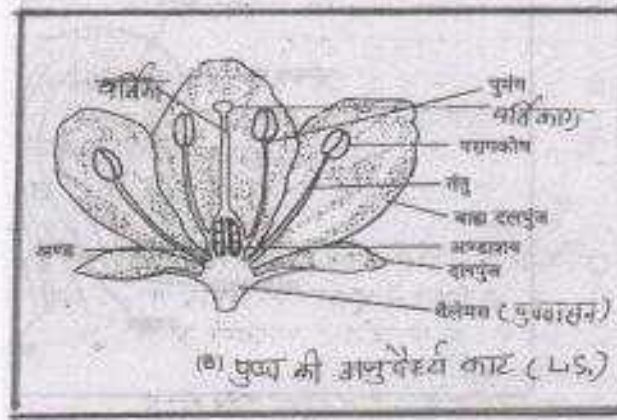 वर्तिका
पुमंग
वर्तिकाग्र
परागकोष
तंतु
बाह्य दलपुंज
अण्ड
अण्डाशय
दलपुंज
थैलेमस (पुष्पासन)
(a) पुष्प की अनुदैर्ध्य काट (L.S.)